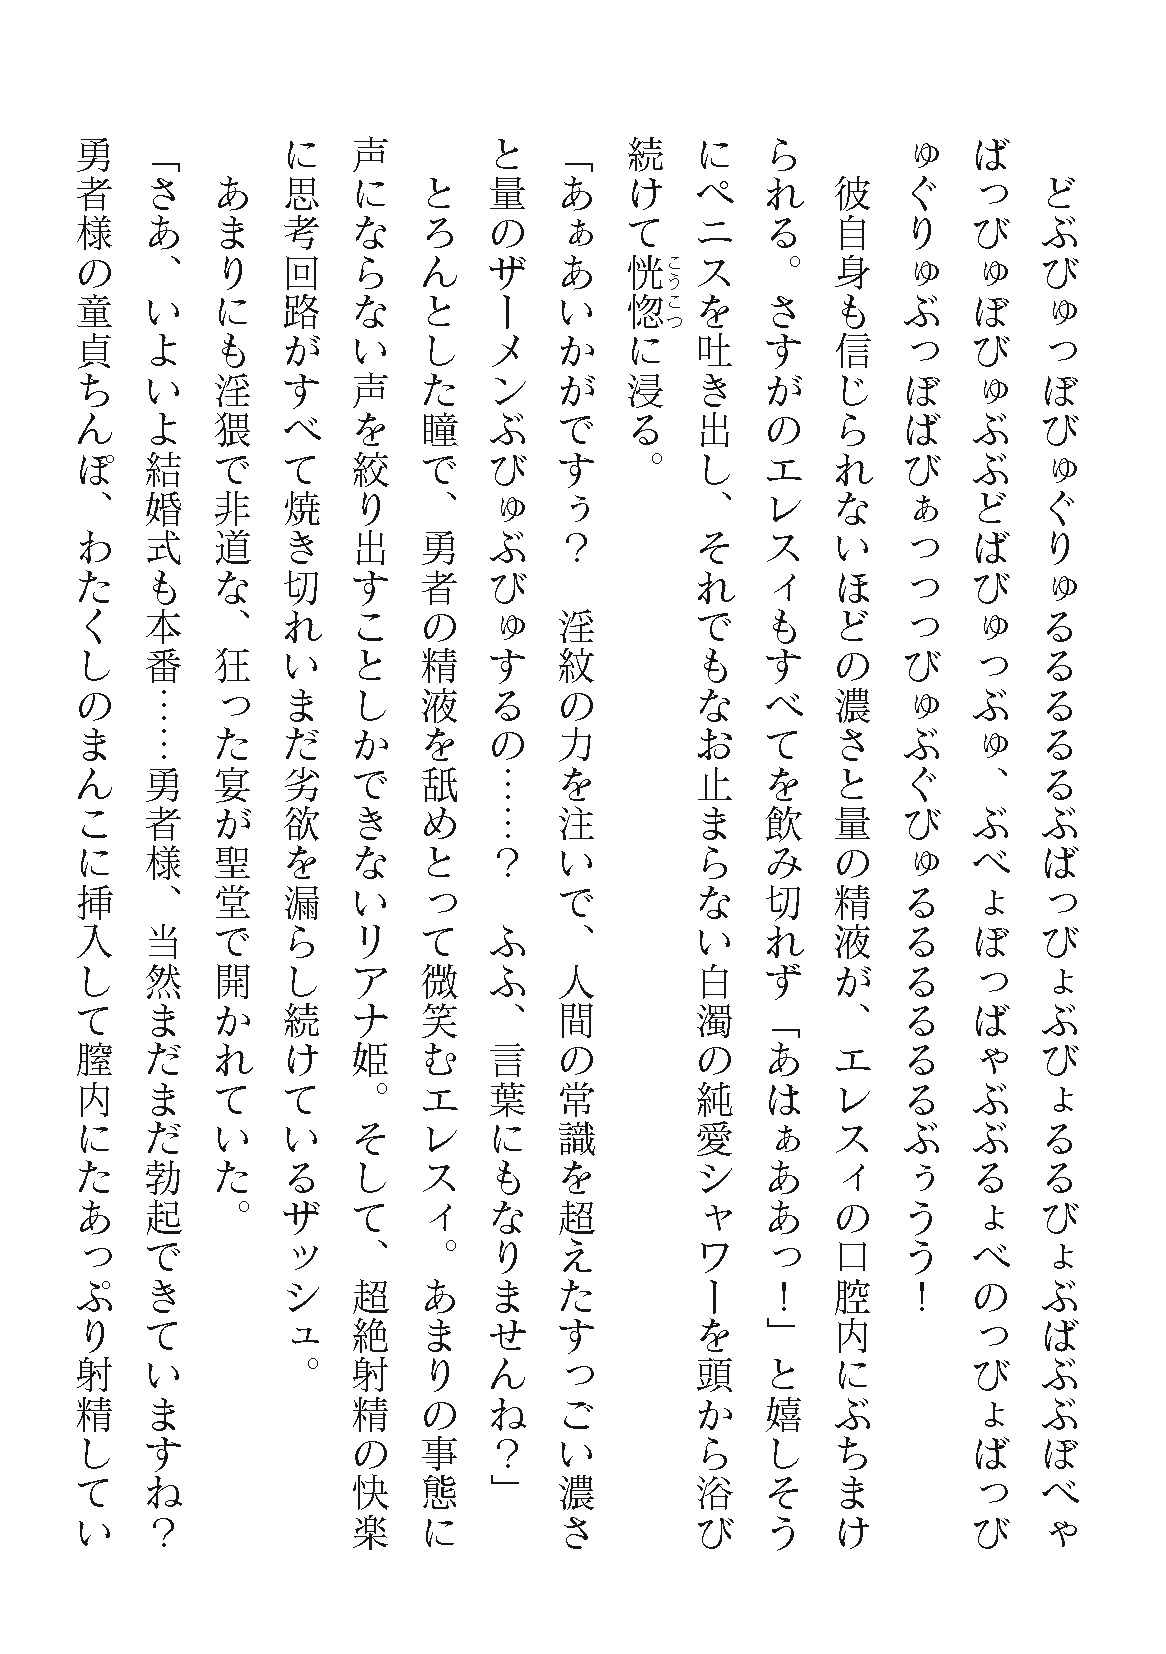 どぶびゅっぼびゅぐりゅるるるるるぶばっびょぶびょるるびょぶばぶぶぼべゃ
ばっびゅぼびゅぶぶどばびゅっぶゅ、ぶべょぼっばゃぶぶるょべのっびょばっび
ゅぐりゅぶっぼばびぁっっっびゅぶぐびゅるるるるるるぶぅうう！
彼自身も信じられないほどの濃さと量の精液が、エレスィの口腔内にぶちまけ
られる。さすがのエレスィもすべてを飲み切れず「あはぁああっ！」と嬉しそう
にペニスを吐き出し、それでもなお止まらない白濁の純愛シャワーを頭から浴び
続けて恍惚こうこつに浸る。
「あぁあいかがですぅ？　淫紋の力を注いで、人間の常識を超えたすっごい濃さ
と量のザーメンぶびゅぶびゅするの……？　ふふ、言葉にもなりませんね？」
とろんとした瞳で、勇者の精液を舐めとって微笑むエレスィ。あまりの事態に
声にならない声を絞り出すことしかできないリアナ姫。そして、超絶射精の快楽
に思考回路がすべて焼き切れいまだ劣欲を漏らし続けているザッシュ。
あまりにも淫猥で非道な、狂った宴が聖堂で開かれていた。
「さあ、いよいよ結婚式も本番……勇者様、当然まだまだ勃起できていますね？
勇者様の童貞ちんぽ、わたくしのまんこに挿入して膣内にたあっぷり射精してい